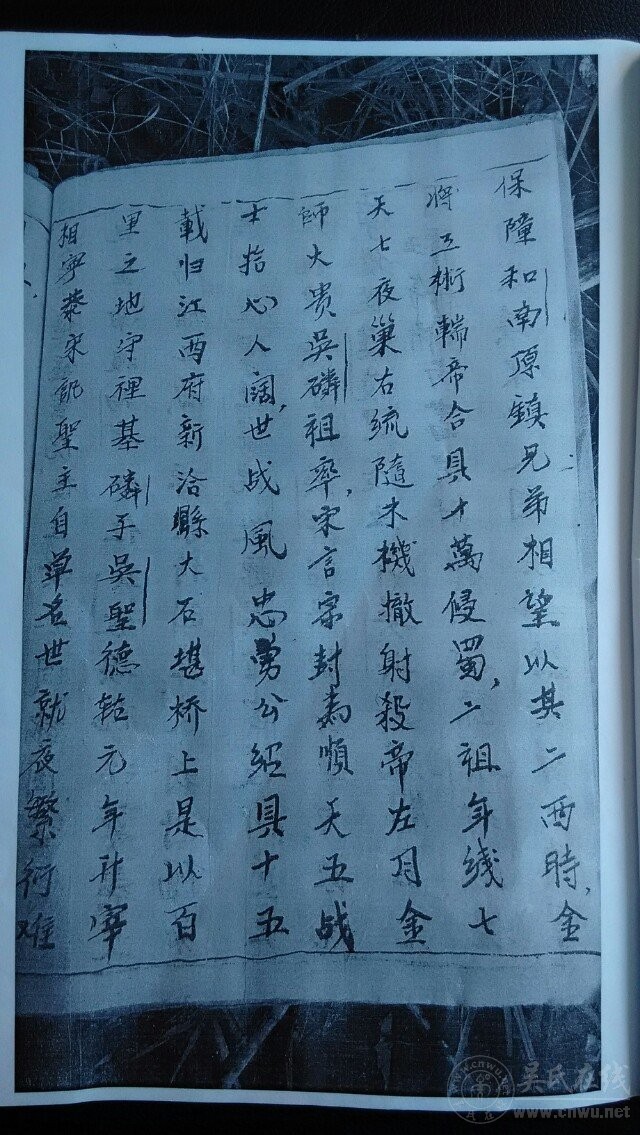 保障和南原鎮兄弟相望以其二西時，金
將工術輪帝合具十萬侵蜀，二祖年线七
天七夜巢右统隨木機撤射殺帝左月金
師大贵吳磷祖率，宋言宗封為順天五战
士拾心人阔，世战風忠勇公紹具十五
載归江西府新洽縣大石堪桥上是以百
里之地守裡基磷子吳聖德轱元年升宰
相寧蔡宋凯聖主自草名世就夜繁衍难
吴氏在线
www.cnwu.net